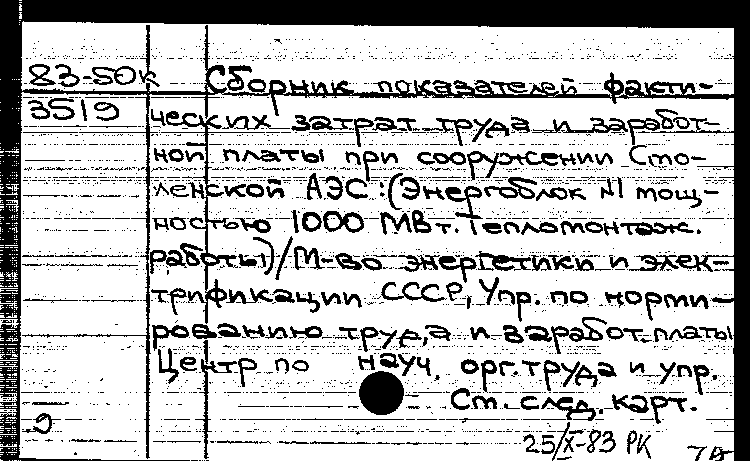 83-50к Сборник показателей факти-
3519 ческих затрат труда и заработ-
ной платы при сооружении Смо-
ленской АЭС : (Энергоблок №1 мощ-
ностью 1000 МВт. Тепломонтаж.
работы) / М-во энергетики и элек-
трификации СССР, Упр. по норми-
рованию труда и заработ. платы
Центр по науч. орг. труда и упр.
См. след. карт.
25/X-83 РК